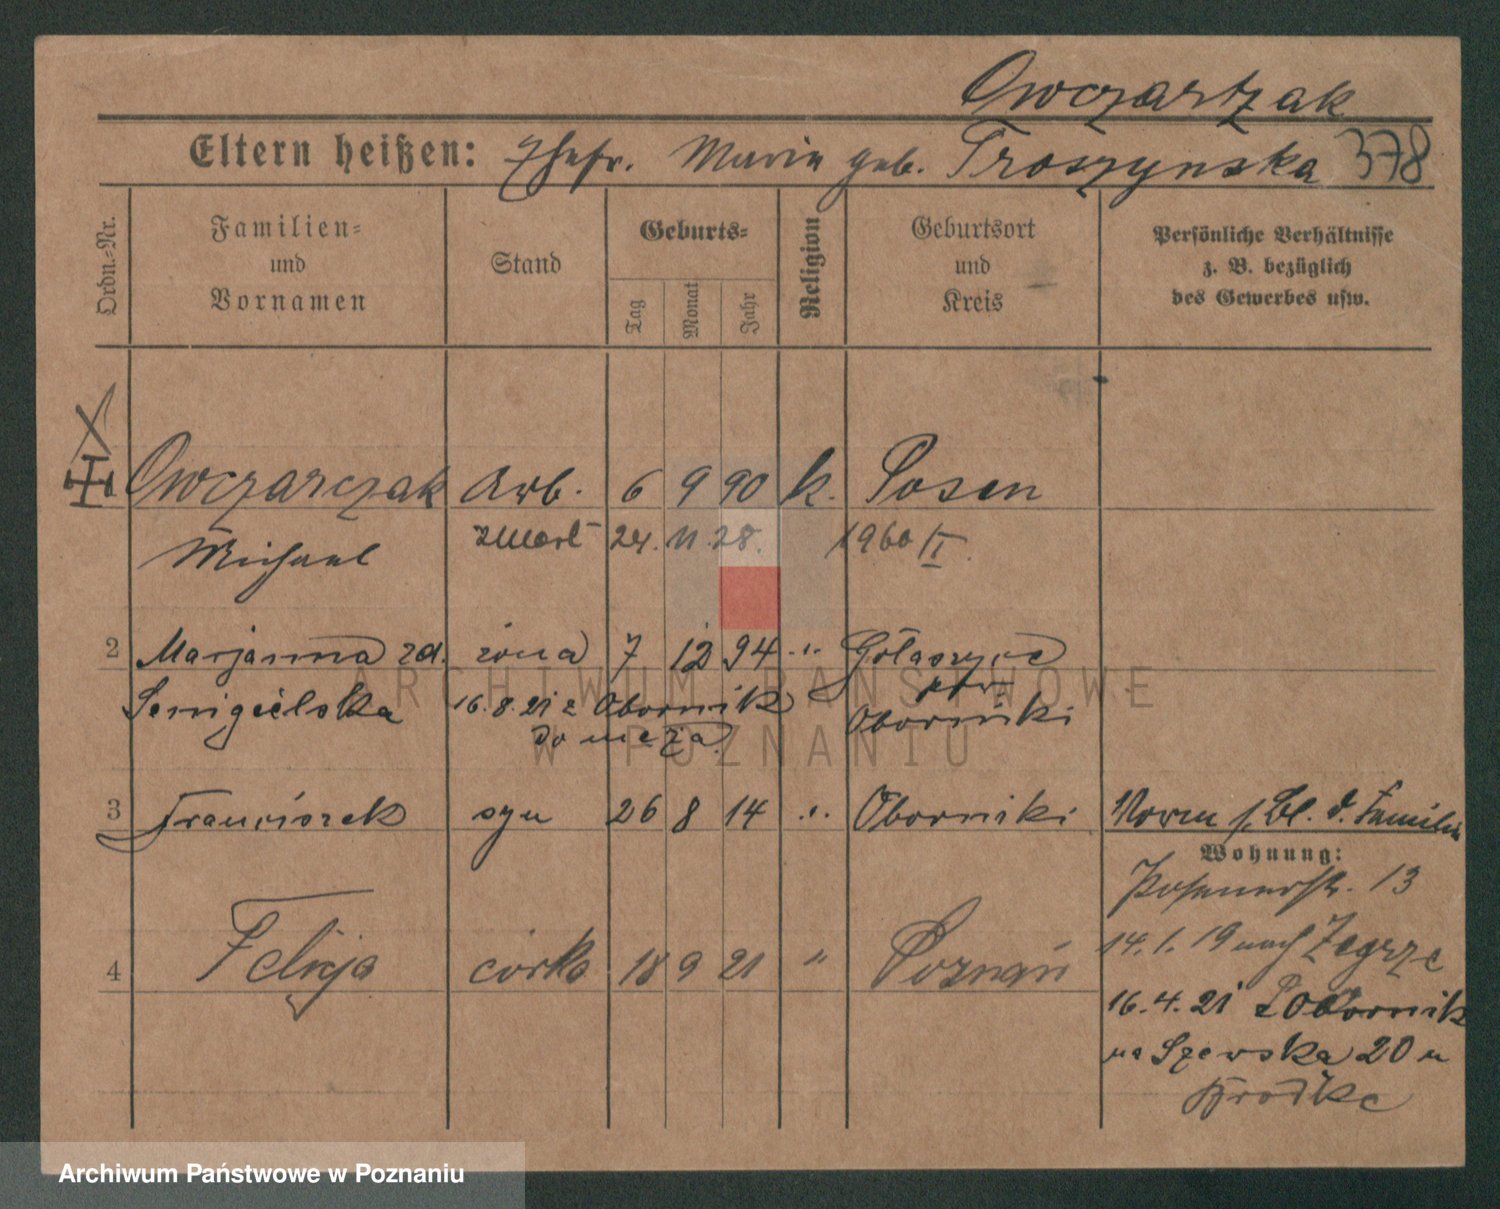 Owczartzak
Eltern heißen: Maria geb. Troszynska 378
Ordn.-Nr.
Familien-
und
Vornamen
Stand
Geburts-
Tag
Monat
Jahr
Religion
Geburtsort
und
Kreis
Persönliche Verhältnisse
z. B. bezüglich
des Gewerbes usw.
Owczarczak Arb. 6 9 90 k. Posen
Michael zmarł 24. 11 28. 1960/II.
2 Marjanna zd. żona 7 12 94 " Gołaszyn
pow.
16.8.21 z Obornik Oborniki
do męża
3 Franciszek syn 26 8 14 " Oborniki
Wohnung:
Posenerstr. 13
4 Felicja córka 18 9 21 " Poznań
14. 1. 19 nach Zegrze
16. 4. 21 z Obornik
na Szewska 20 u
ARCHIWUM PAŃSTWOWE
W POZNANIU
Archiwum Państwowe w Poznaniu